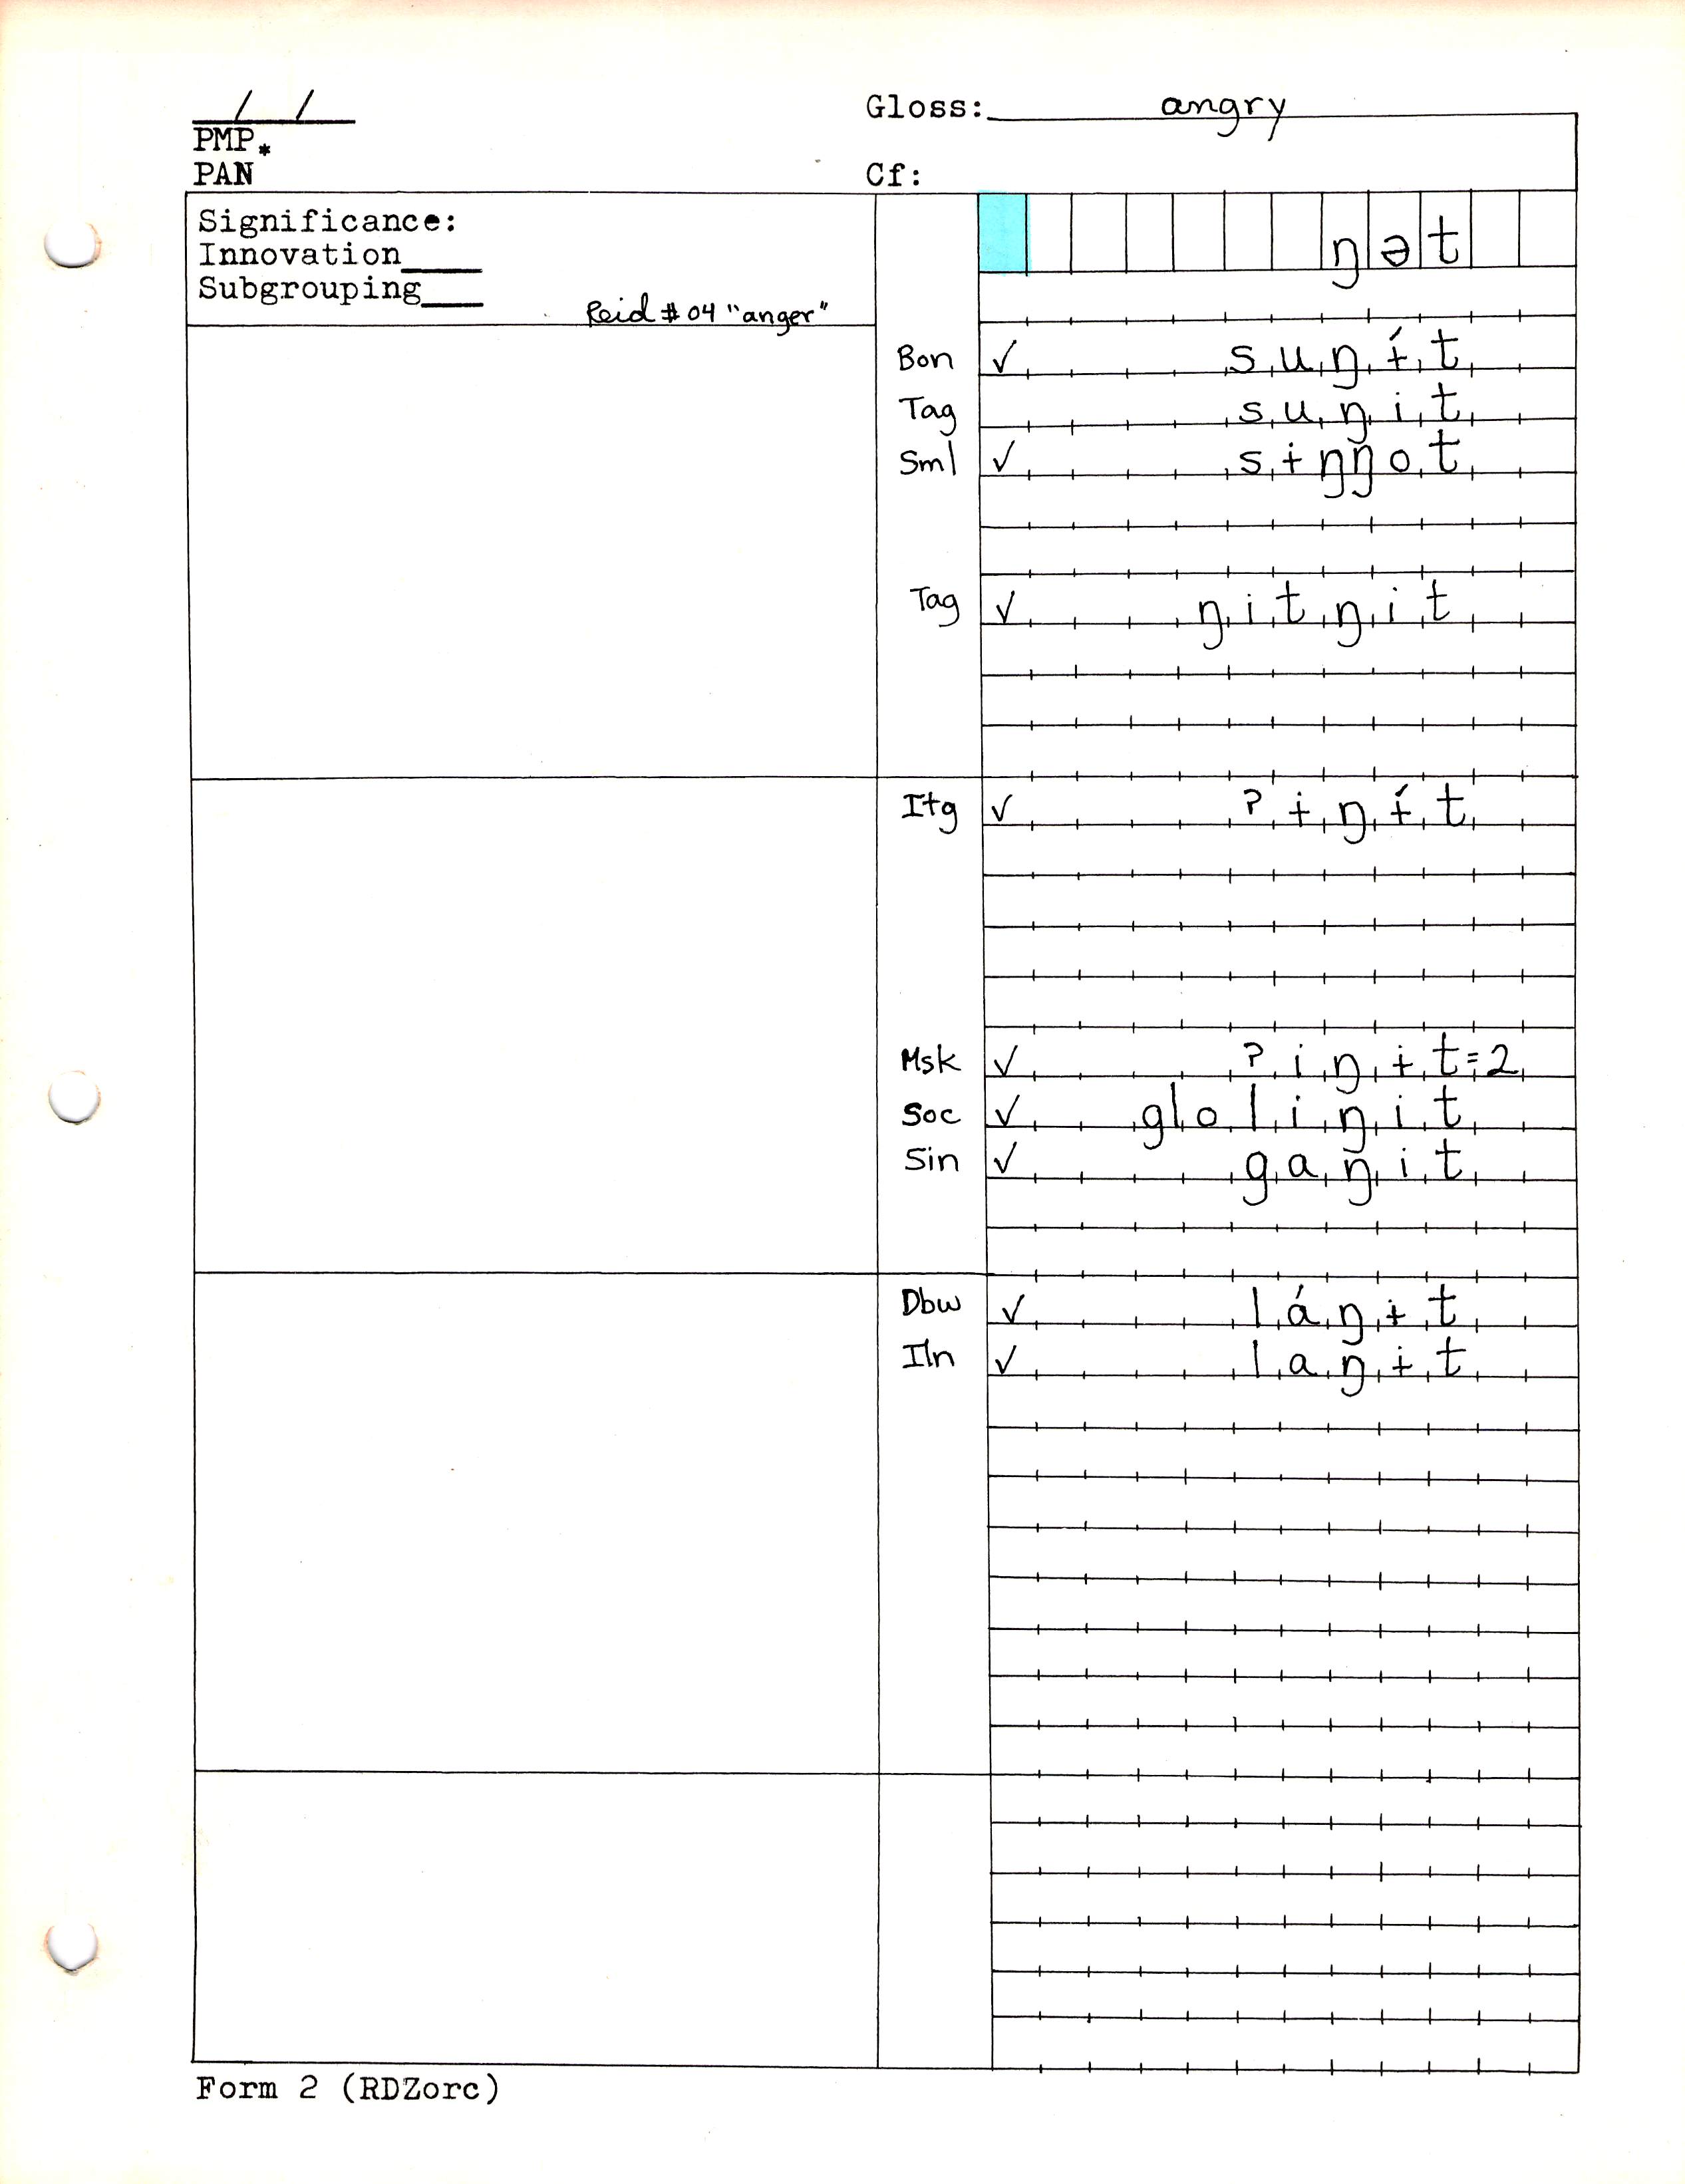 / /
Gloss: angry
PMP*
PAN
Cf:
Significance:
Innovation____
Subgrouping___
Reid # 04 "anger"
ŋət
Bon ✓ suŋɨ́t
Tag suŋit
Sml ✓ sɨŋŋot
Tag ✓ ŋitŋit
Itg ✓ ʔɨŋɨ́t
Msk ✓ ʔiŋɨt=2
Soc ✓ gloliŋit
Sin ✓ gaŋit
Dbw ✓ láŋɨt
Iln ✓ laŋɨt
Form 2 (RDZorc)